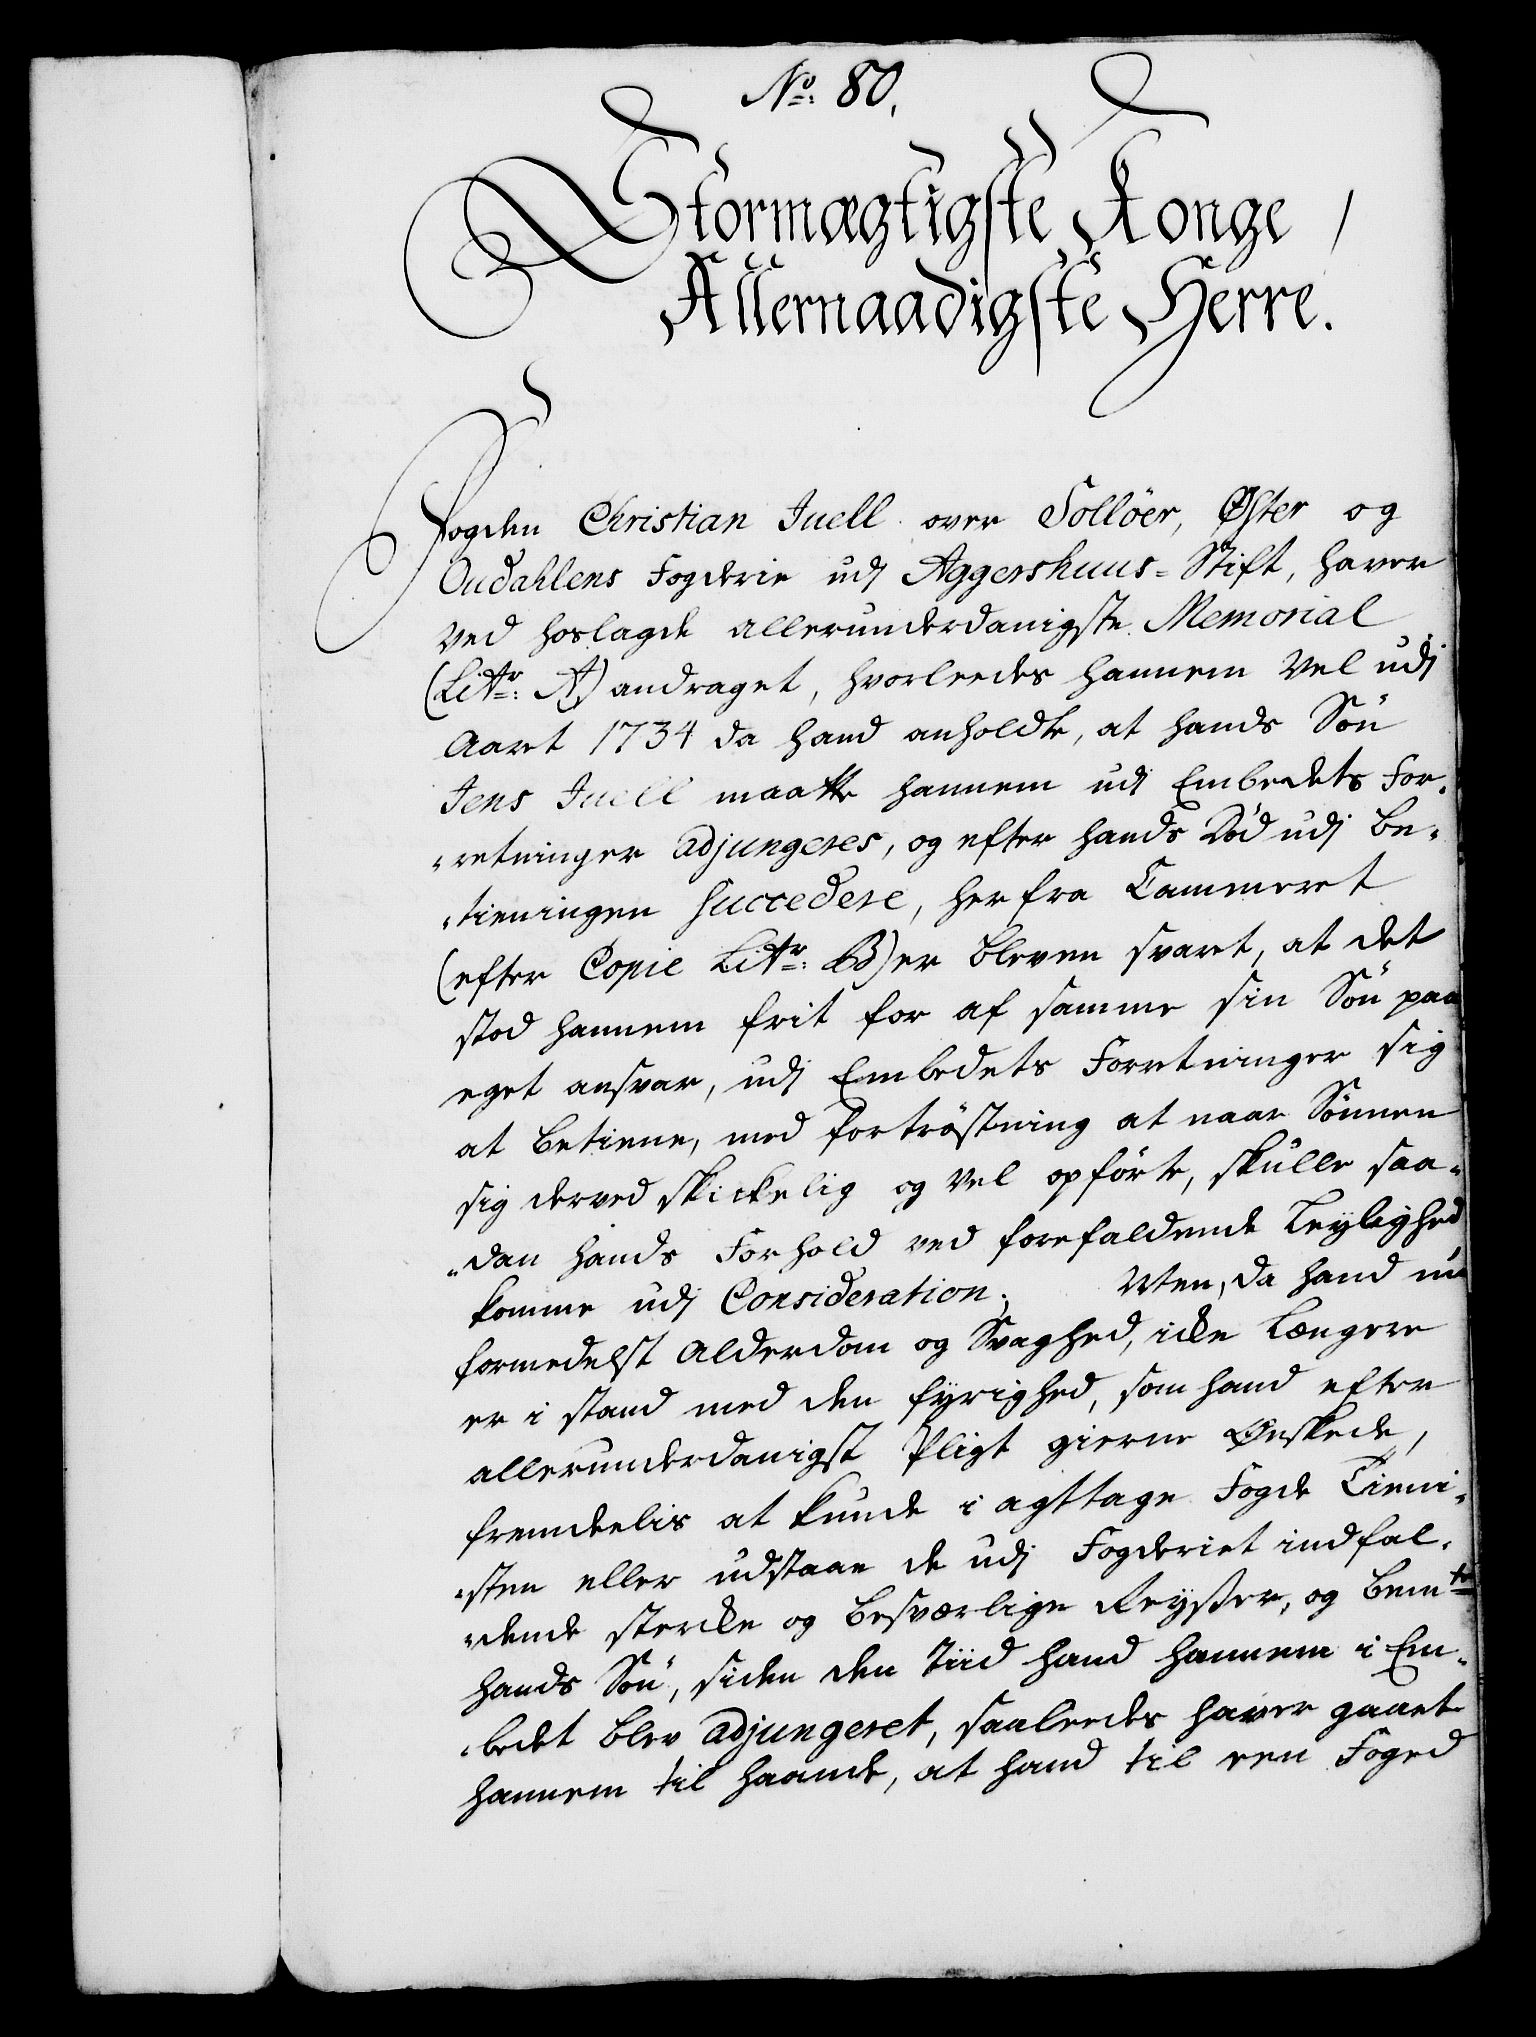 No: 80.
Stormægtigste Konge /
Allernaadigste Herre.
Fogden Christian Juell over Solløer, Øster og
Oudahlens Fogderie udj Aggershuus-Stift, haver
ved hoslagde allerunderdanigste Memorial
(Littr: A) andraget, hvorleedes hannem vel udj
Aaret 1734 da hand anholdte, at hands Søn
Jens Juell maatte hannem udj Embedets For-
-retninger adjungeres, og efter hands Død udj be-
-tieningen succedere, her fra Cammeret
(efter Copie Littr: B) er bleven svaret, at det
stod hannem frit for af samme sin Søn paa
eget ansvar, udj Embedets Forretninger sig
at betiene, med fortrøstning at naar Sønnen
sig derved skickelig og vel opførte, skulle saa-
-dan hands Forhold ved forefaldende Leylighed
komme udj Consideration. Men, da hand nu
formedelst Alderdom og Svaghed, icke længere
er i stand med den fyrighed, som hand efter
allerunderdanigst Pligt gierne Ønskede,
fremdeelis at kunde i agttage Fogde Tieni-
-sten eller udstaae de udj Fogderiet indfal-
-dende stercke og besværlige Reyßer, og bemte
hands Søn, siden den Tiid hand hannem i Em-
-bedet blev adjungeret, saaleedes haver gaaet
hannem til haande, at hand til een Foged